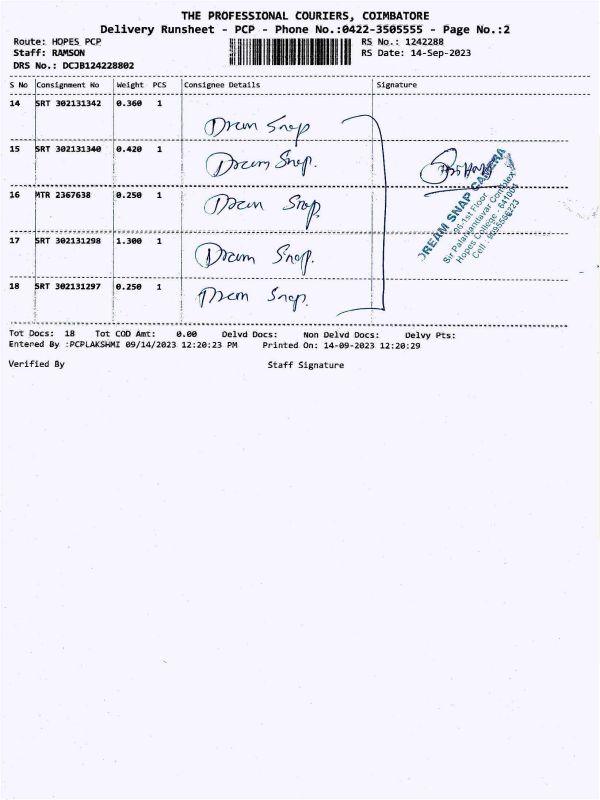 THE PROFESSIONAL COURIERS, COIMBATORE
Delivery Runsheet - PCP - Phone No.:0422-3505555 - Page No.:2
Route: HOPES PCP
RS No.: 1242288
Staff: RAMSON
RS Date: 14-Sep-2023
DRS No.: DCJB124228802
S No Consignment No Weight PCS Consignee Details Signature
14 SRT 302131342 0.360 1
Dream Snap
15 SRT 302131340 0.420 1
Dream Snap.
16 MTR 2367638 0.250 1
Dream Snap.
17 SRT 302131298 1.300 1
Dream Snap.
18 SRT 302131297 0.250 1
Dream Snap.
DREAM SNAP CAMERA
1st Floor
Sir Palaniandavar Complex
Hopes College - 641004
Cell :
Tot Docs: 18 Tot COD Amt: 0.00 Delvd Docs: Non Delvd Docs: Delvy Pts:
Entered By :PCPLAKSHMI 09/14/2023 12:20:23 PM Printed On: 14-09-2023 12:20:29
Verified By Staff Signature